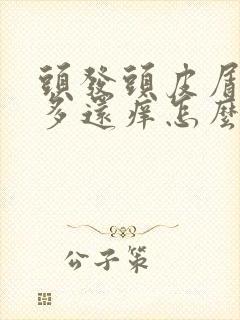 頭發頭皮屑
多還痒怎麼
公子策